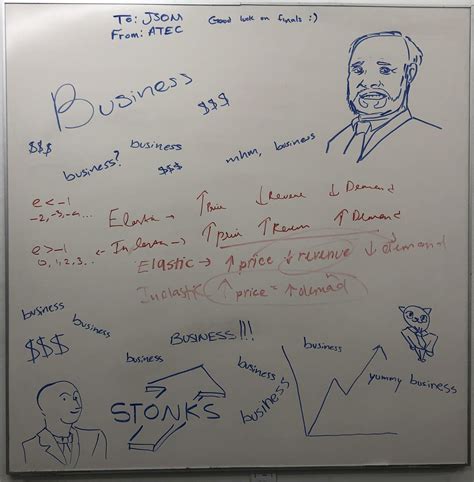 To: JSOM
From: ATEC
Good luck on finals :)
Business
$$$
$$$
business?
business
$$$
mhm, business
e < -1
-2, -3, -4, ...
Elastic → ↑ Price ↓ Revenue ↓ Demand
e > -1
0, 1, 2, 3, ..
↑ price ↑ Revenue ↑ Demand
Elastic → ↑ price ↓ revenue ↓ demand
Inelastic ↑ price = ↑ demad
business
business
$$$
BUSINESS!!!
business
STONKS
business
business
business
yummy business